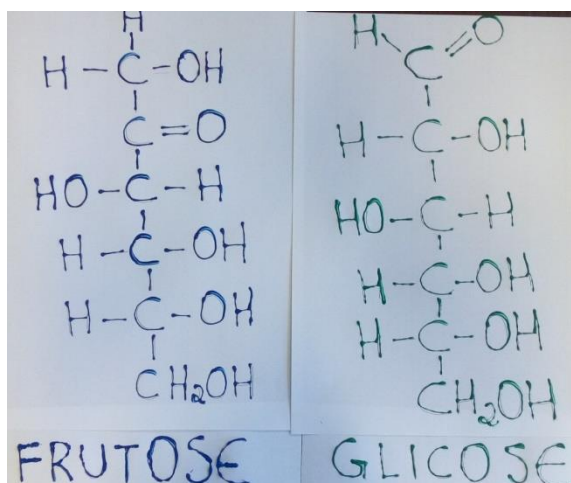 H
H - C - OH
C = O
HO - C - H
H - C - OH
H - C - OH
CH₂OH
FRUTOSE
H C = O
H - C - OH
HO - C - H
H - C - OH
H - C - OH
CH₂OH
GLICOSE